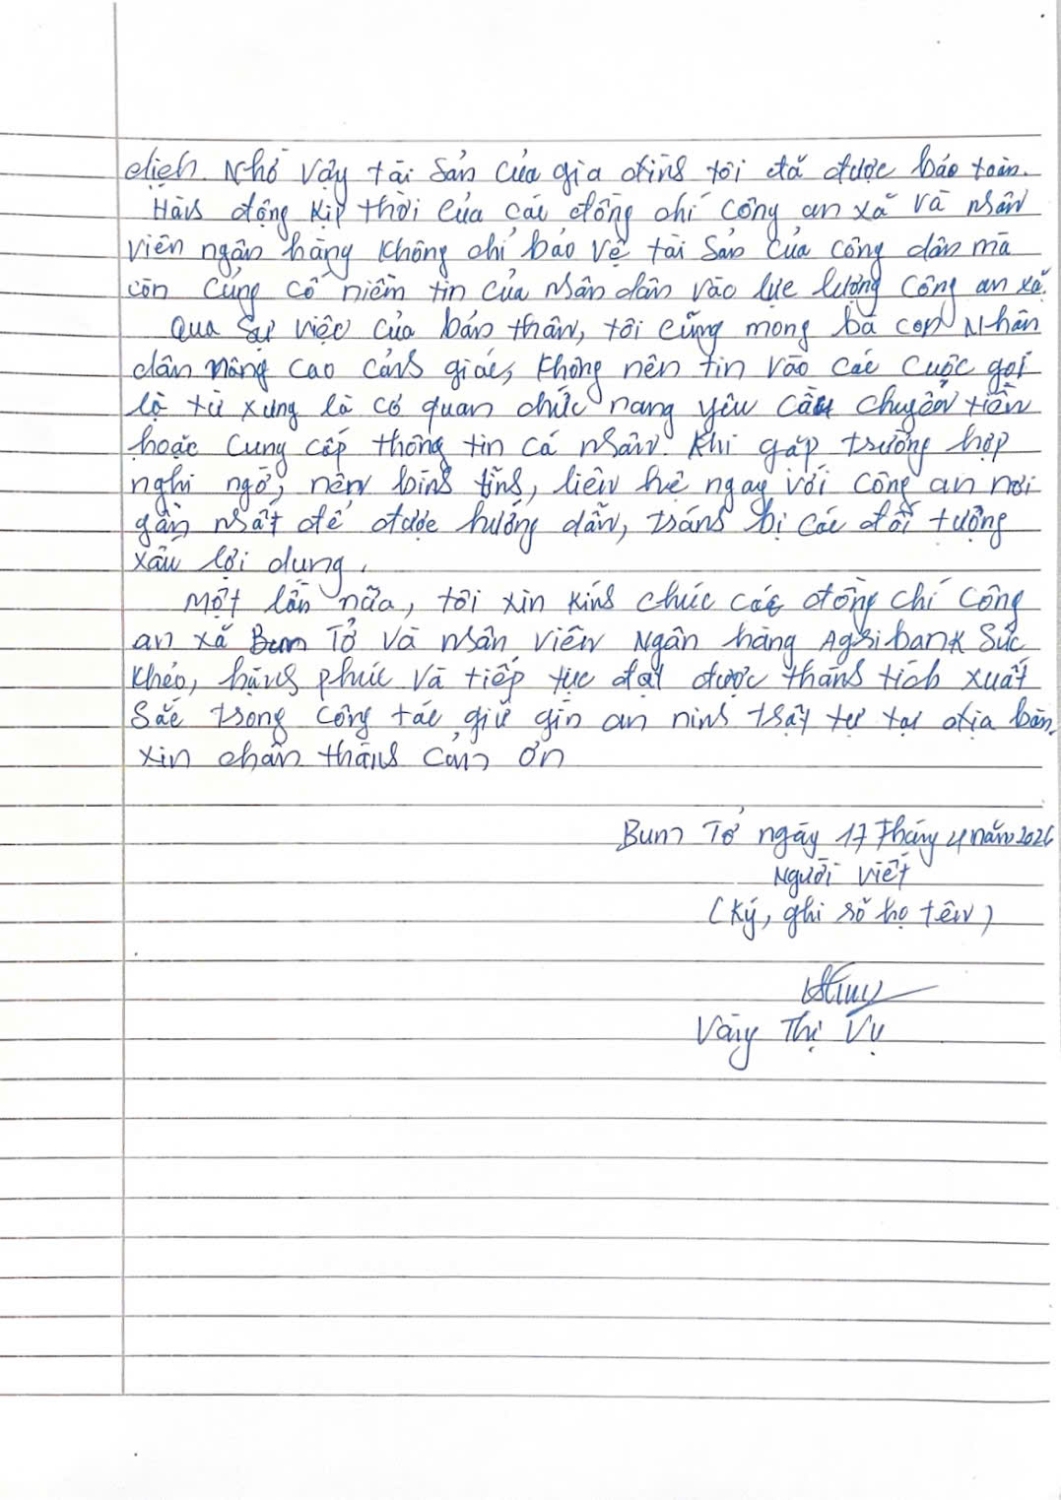 dịch. Nhờ vậy tài sản của gia đình tôi đã được bảo toàn.
Hành động kịp thời của các đồng chí công an xã và nhân
viên ngân hàng không chỉ bảo vệ tài sản của công dân mà
còn củng cố niềm tin của nhân dân vào lực lượng công an xã.
Qua sự việc của bản thân, tôi cũng mong bà con nhân
dân nâng cao cảnh giác, không nên tin vào các cuộc gọi
lạ tự xưng là cơ quan chức năng yêu cầu chuyển tiền
hoặc cung cấp thông tin cá nhân. Khi gặp trường hợp
nghi ngờ, nên bình tĩnh, liên hệ ngay với công an nơi
gần nhất để được hướng dẫn, tránh bị các đối tượng
xấu lợi dụng.
Một lần nữa, tôi xin kính chúc các đồng chí Công
an xã Bum Tở và nhân viên Ngân hàng Agribank sức
khỏe, hạnh phúc và tiếp tục đạt được thành tích xuất
sắc trong công tác giữ gìn an ninh trật tự tại địa bàn.
Xin chân thành cảm ơn
Bum Tở ngày 17 tháng 4 năm 2026
Người viết
(Ký, ghi rõ họ tên)
Vàng Thị Vụ